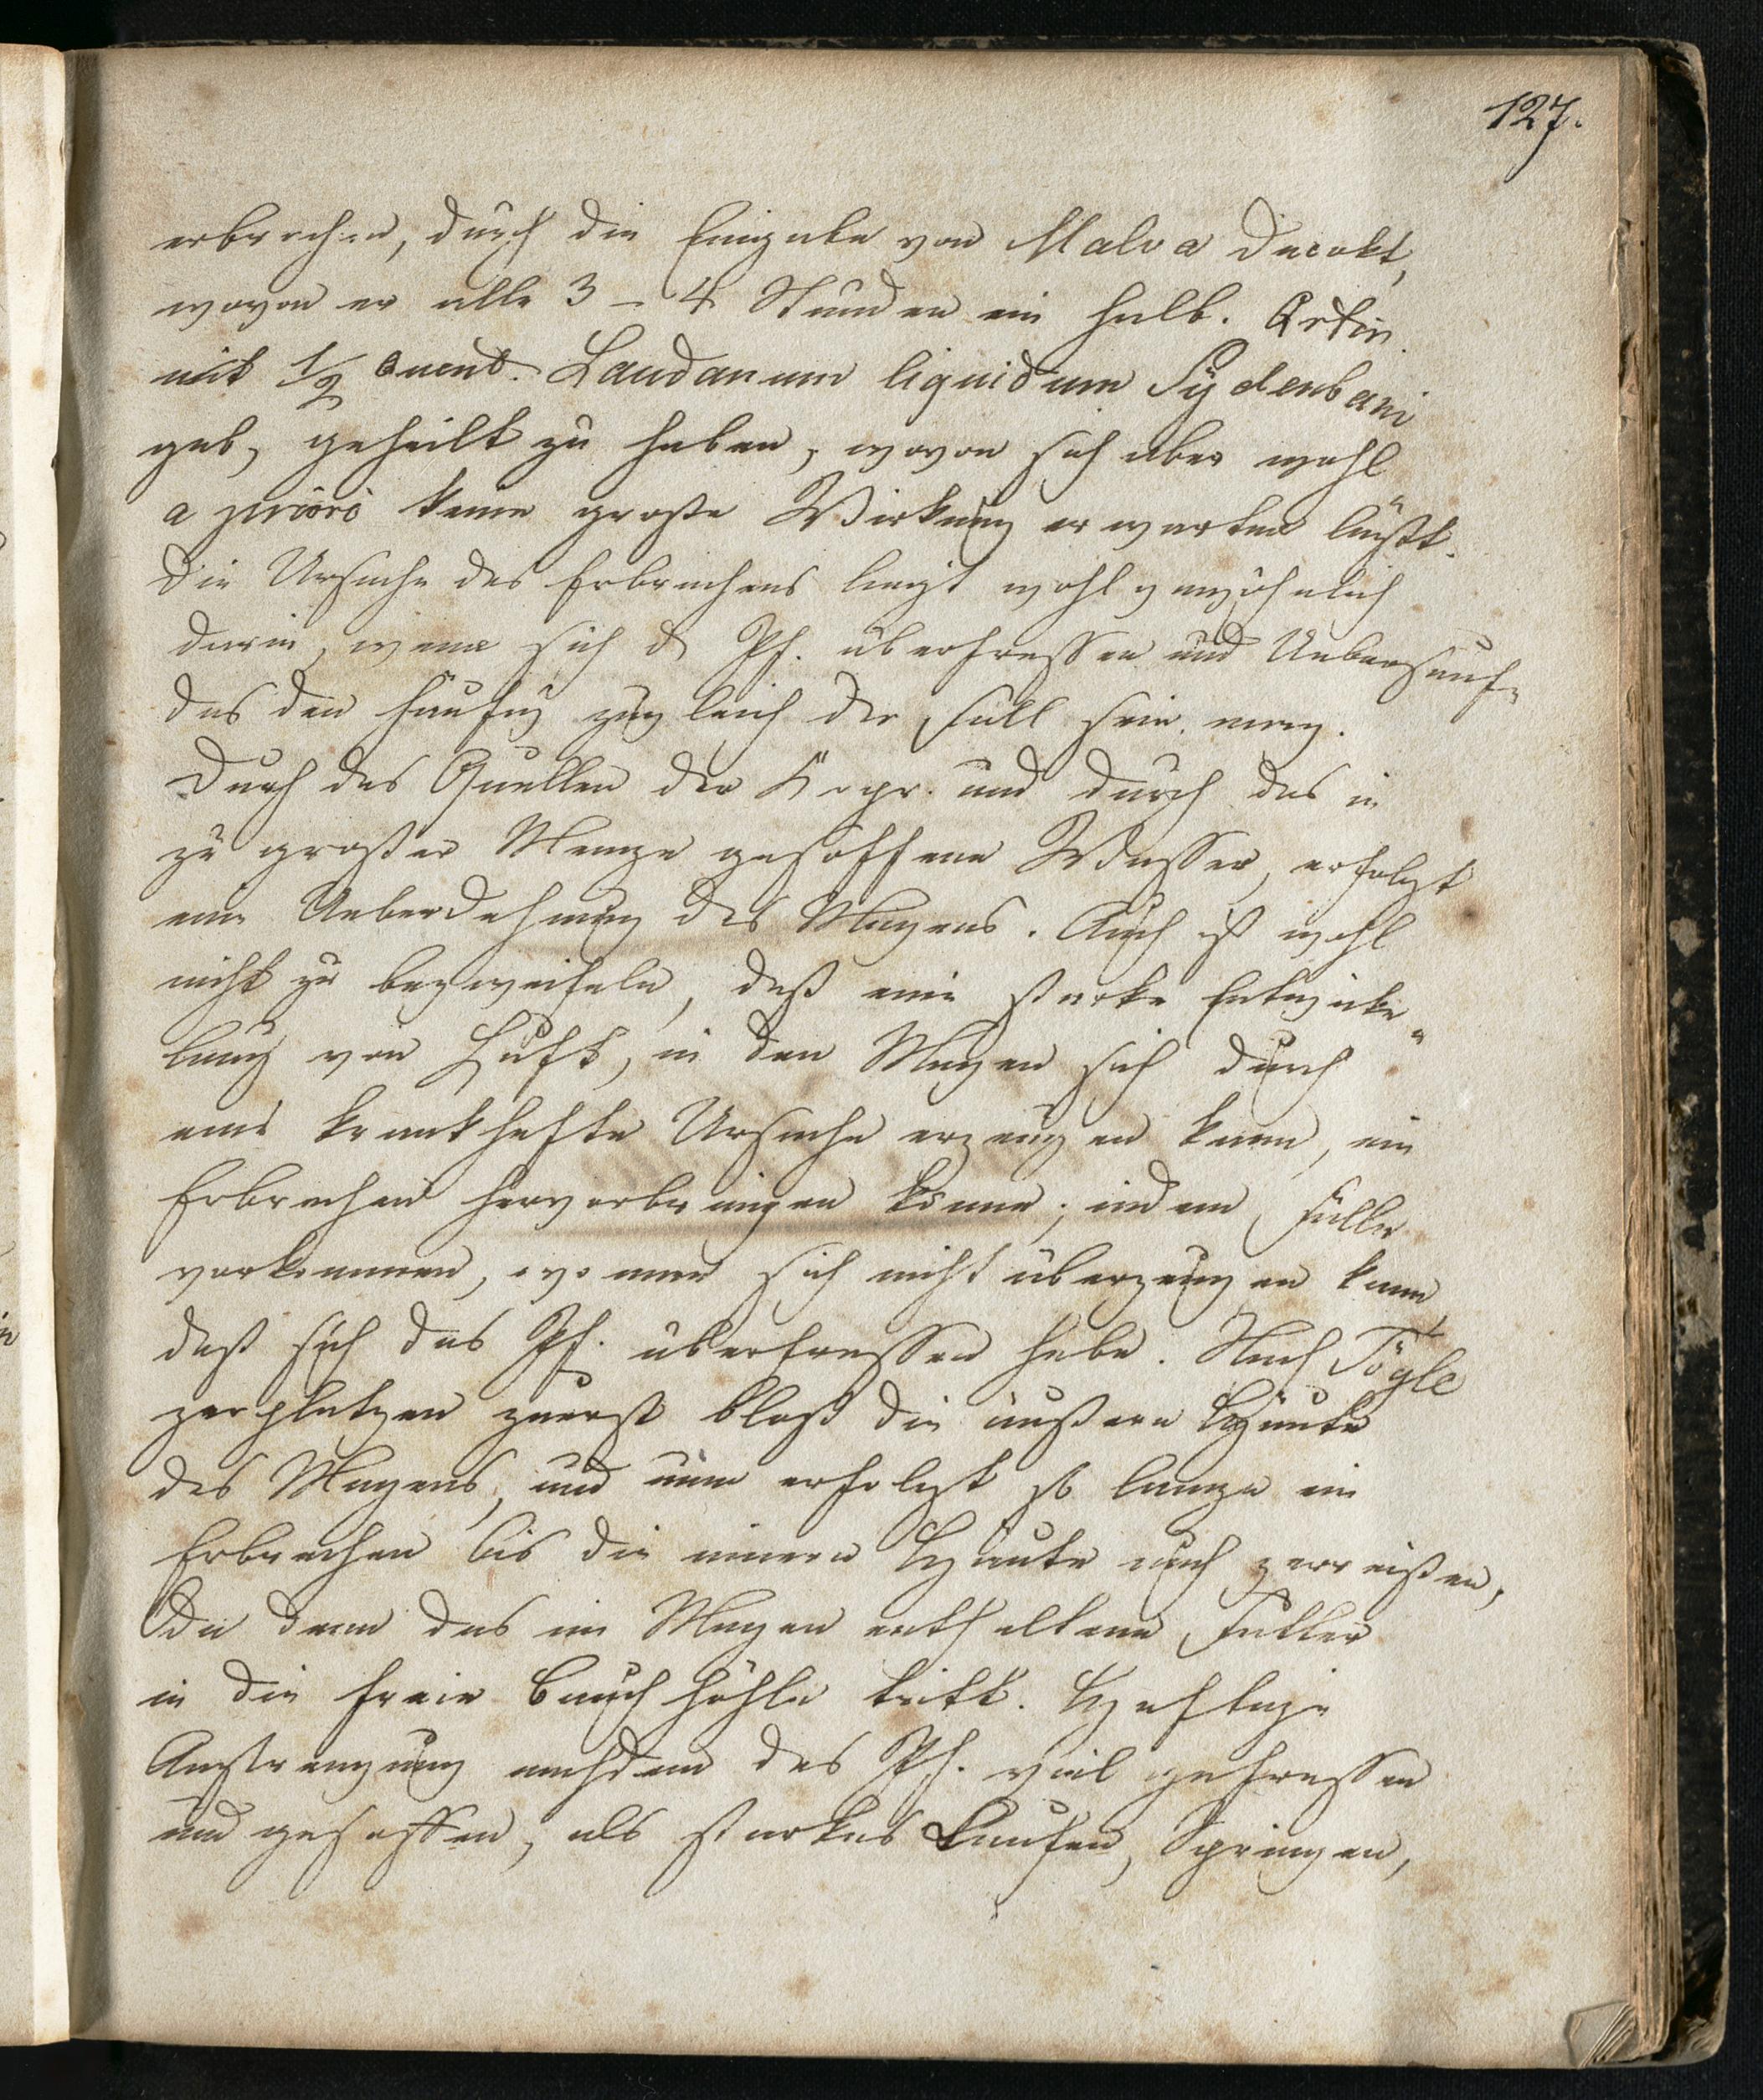 127.
erbrechen, durch die Eingabe von Malva Decokt,
wovon er alle 3 – 4 Stunden ein halb.
mit 1/2 Quent. Laudanum liquidum Sydenhami
gab, geheilt zu haben, wovon sich aber wohl
a priori keine große Wirkung erwarten läßt.
Die Ursache des Erbrechens liegt wohl gewöhnlich
darin, wenn sich d Pf. überfressen und Uebersauf-
das den häufig zugleich der Fall sein mag.
Durch das Quellen der Körper und durch das in
zu großer Menge gesoffene Wasser, erfolgt
eine Ueberdehnung des Magens. Auch ist wohl
nicht zu bezweifeln, daß eine starke Entwicke-
lung von Luft, in den Magen sich durch
eine krankhafte Ursache erzeugen kann, ein
Erbrechen hervorbringen könne; indem Fälle
vorkommen, wo man sich nicht überzeugen kann
daß sich das Pf. überfressen habe. Nach Tögle
zerplatzen zuerst bloß die äußern Häute
des Magens, und nun erfolgt so lange ein
Erbrechen bis die innern Häute auch zerreißen,
da dann das im Magen enthaltene Futter
in die freie Bauchhöhle tritt. Heftige
Anstrengung nachdem das Pf. viel gefressen
und gesoffen, als starkes Laufen, Springen,